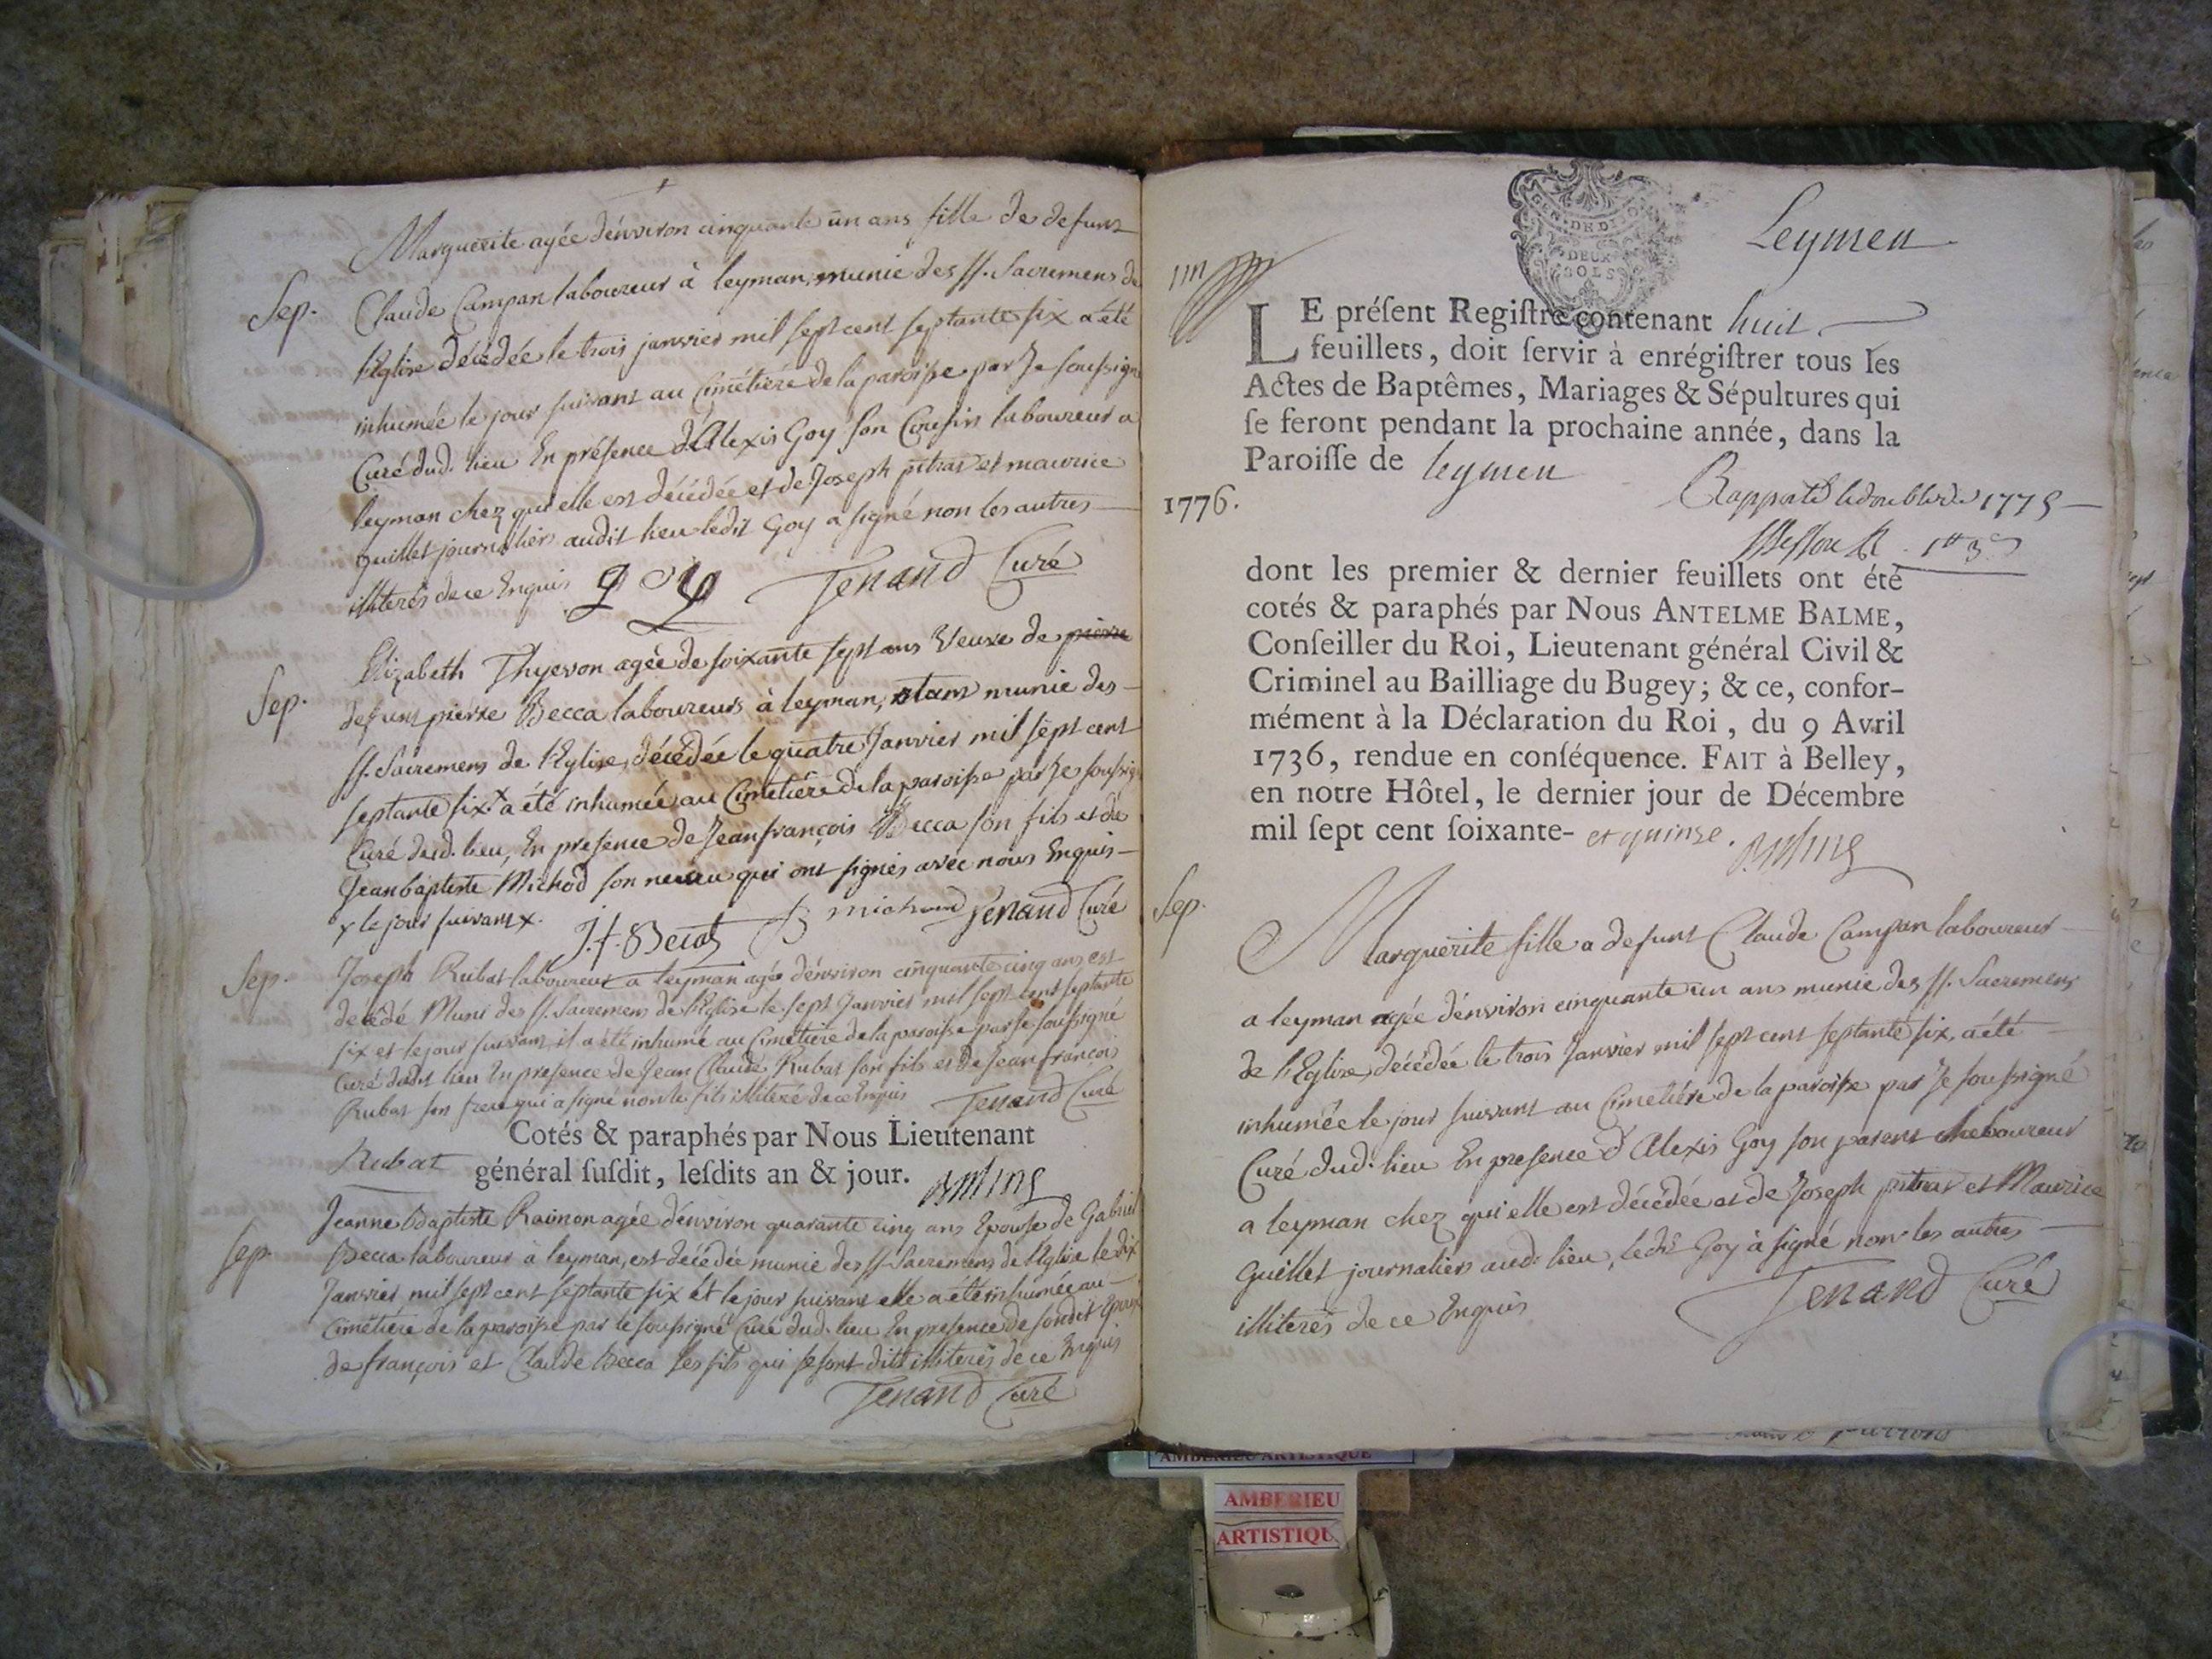 Marguerite agée d'environ cinquante un ans fille de defunt
Sep. Claude Campan laboureur à leyman, munie des SS. Sacremens de
l'Eglise décédée le trois janvier mil sept cent septante six a été
inhumée le jour suivant au Cimétiére de la paroisse par Je soussigné
Curé dud. lieu En présence d'Alexis Goy son Cousin laboureur a
leyman chez qui elle est décédée et de Joseph pitrat et maurice
guillet journaliers audit lieu ledit Goy a signé non les autres
illiterés de ce Enquis goy Tenand Curé
Elizabeth Thyevon agée de soixante sept ans Veuve de pierre
Sep. defunt pierre Becca laboureurs à leyman, munie des
SS. Sacremens de l'Eglise, décédée le quatre Janvier mil sept cent
septante six x a été inhumée au Cimétiére de la paroisse par Je soussigné
Curé dud. lieu, En presence de Jean françois Becca son fils et de
Jean baptiste Michod son neveu qui ont signés avec nous Enquis
x le jour suivant x. J. f. Becat michaud Tenand Curé
Sep. Joseph Rubat laboureur a leyman agé d'environ cinquante cinq ans est
decédé Muni des SS. Sacremens de l'Eglise le sept Janvier mil sept cent septante
six et le jour suivant il a été inhumé au Cimétiére de la paroisse par Je soussigné
Curé dudit lieu En presence de Jean Claude Rubat son fils et de Jean françois
Rubat son frere qui a signé non le fils illiteré de ce Enquis Tenand Curé
Cotés & paraphés par Nous Lieutenant
Rubat
général ſuſdit, leſdits an & jour.
Jeanne Baptiste Rainon agée d'environ quarante cinq ans Epouse de Gabriel
Sep. Becca laboureur à leyman, est décédée munie des SS. Sacremens de l'Eglise le dix
Janvier mil sept cent septante six et le jour suivant elle a été inhumée au
Cimétiére de la paroisse par le soussigné Curé dud. lieu En presence de sondit Epoux
de françois et Claude Becca ses fils qui se sont dits illiterés de ce Enquis
Tenand Curé
GEN. DE DIJON
DEUX
SOLS
Leymen
LE préſent Regiſtre contenant huit
feuillets, doit ſervir à enrégiſtrer tous les
Actes de Baptêmes, Mariages & Sépultures qui
ſe feront pendant la prochaine année, dans la
Paroiſſe de leymen
Rapporté le double de 1775
1776.
dont les premier & dernier feuillets ont été
cotés & paraphés par Nous ANTELME BALME,
Conſeiller du Roi, Lieutenant général Civil &
Criminel au Bailliage du Bugey; & ce, confor-
mément à la Déclaration du Roi, du 9 Avril
1736, rendue en conſéquence. FAIT à Belley,
en notre Hôtel, le dernier jour de Décembre
mil ſept cent ſoixante- et quinse.
Sep.
Marguerite fille a defunt Claude Campan laboureur
a leyman agée d'environ cinquante un ans munie des SS. Sacremens
de l'Eglise, décédée le trois Janvier mil sept cent septante six, a été
inhumée le jour suivant au Cimetiére de la paroisse par Je soussigné
Curé dud. lieu En presence d'Alexis Goy son parent laboureur
a leyman chez qui elle est décédée et de Joseph pitrat et Maurice
Guillet journaliers aud. lieu, led. Goy à signé non les autres
illiterés de ce Enquis Tenand Curé
AMBERIEU ARTISTIQUE
AMBERIEU
ARTISTIQU